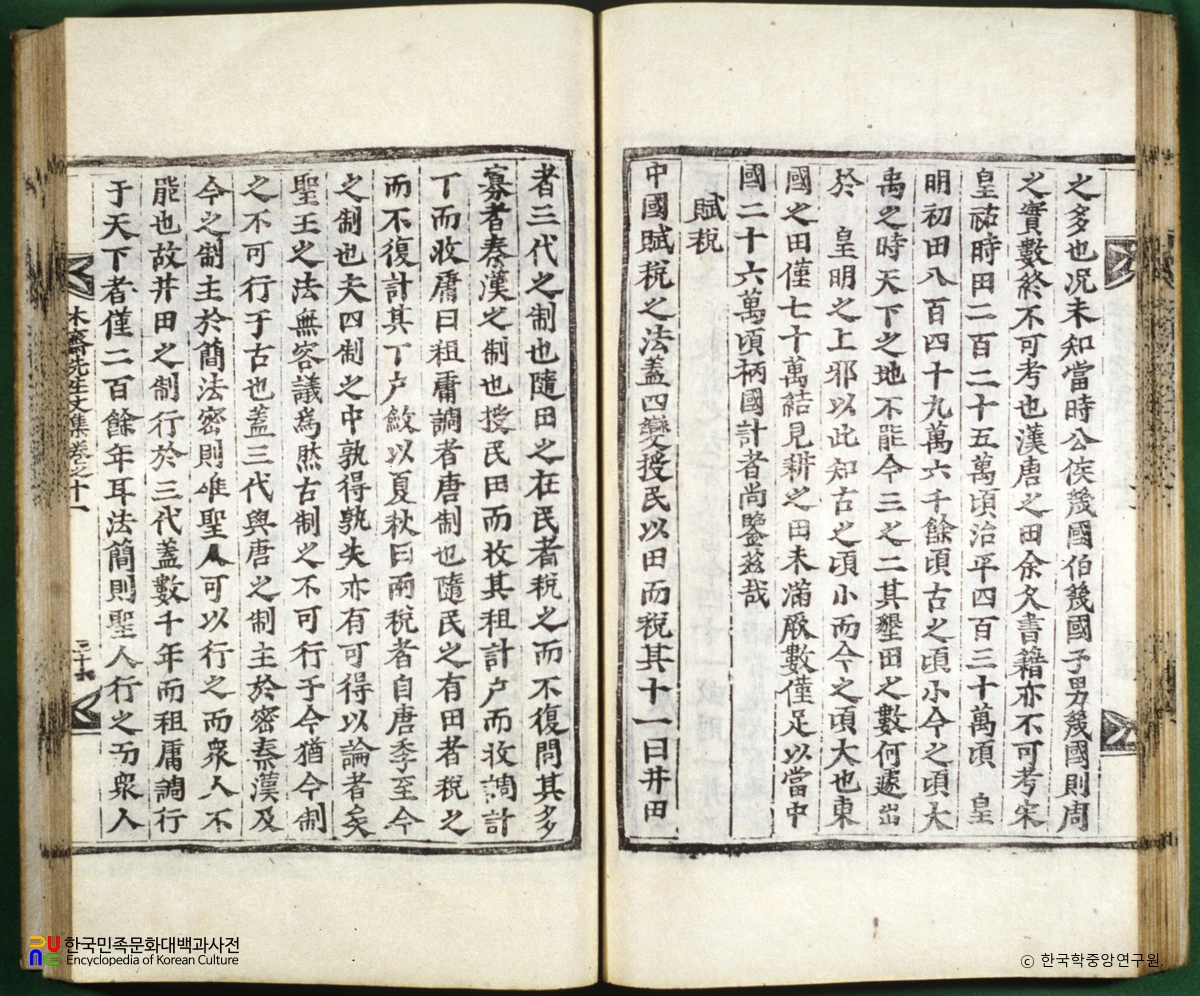 之多也况未知當時公侯幾國伯幾國子男幾國則周
之實數終不可考也漢唐之田余欠書籍亦不可考宋
皇祐時田二百二十五萬頃治平四百三十萬頃 皇
明初田八百四十九萬六千餘頃古之頃小今之頃大
禹之時天下之地不能今三之二其墾田之數何遽出
於 皇明之上邪以此知古之頃小而今之頃大也東
國之田僅七十萬結見耕之田未滿厥數僅足以當中
國二十六萬頃柄國計者尚鑒茲哉
賦稅
中國賦稅之法蓋四變授民以田而稅其十一曰井田
者三代之制也隨田之在民者稅之而不復問其多
寡者秦漢之制也授民田而收其租計户而收調計
丁而收庸曰租庸調者唐制也隨民之有田者稅之
而不復計其丁户斂以夏秋曰兩稅者自唐季至今
之制也夫四制之中孰得孰失亦有可得以論者矣
聖王之法無容議爲然古制之不可行于今猶今制
之不可行于古也蓋三代與唐之制主於密秦漢及
今之制主於簡法密則唯聖人可以行之而衆人不
能也故井田之制行於三代蓋數千年而租庸調行
于天下者僅二百餘年耳法簡則聖人行之而衆人
木齋先生文集卷之十一
三十六
한국민족문화대백과사전
Encyclopedia of Korean Culture
ⓒ 한국학중앙연구원